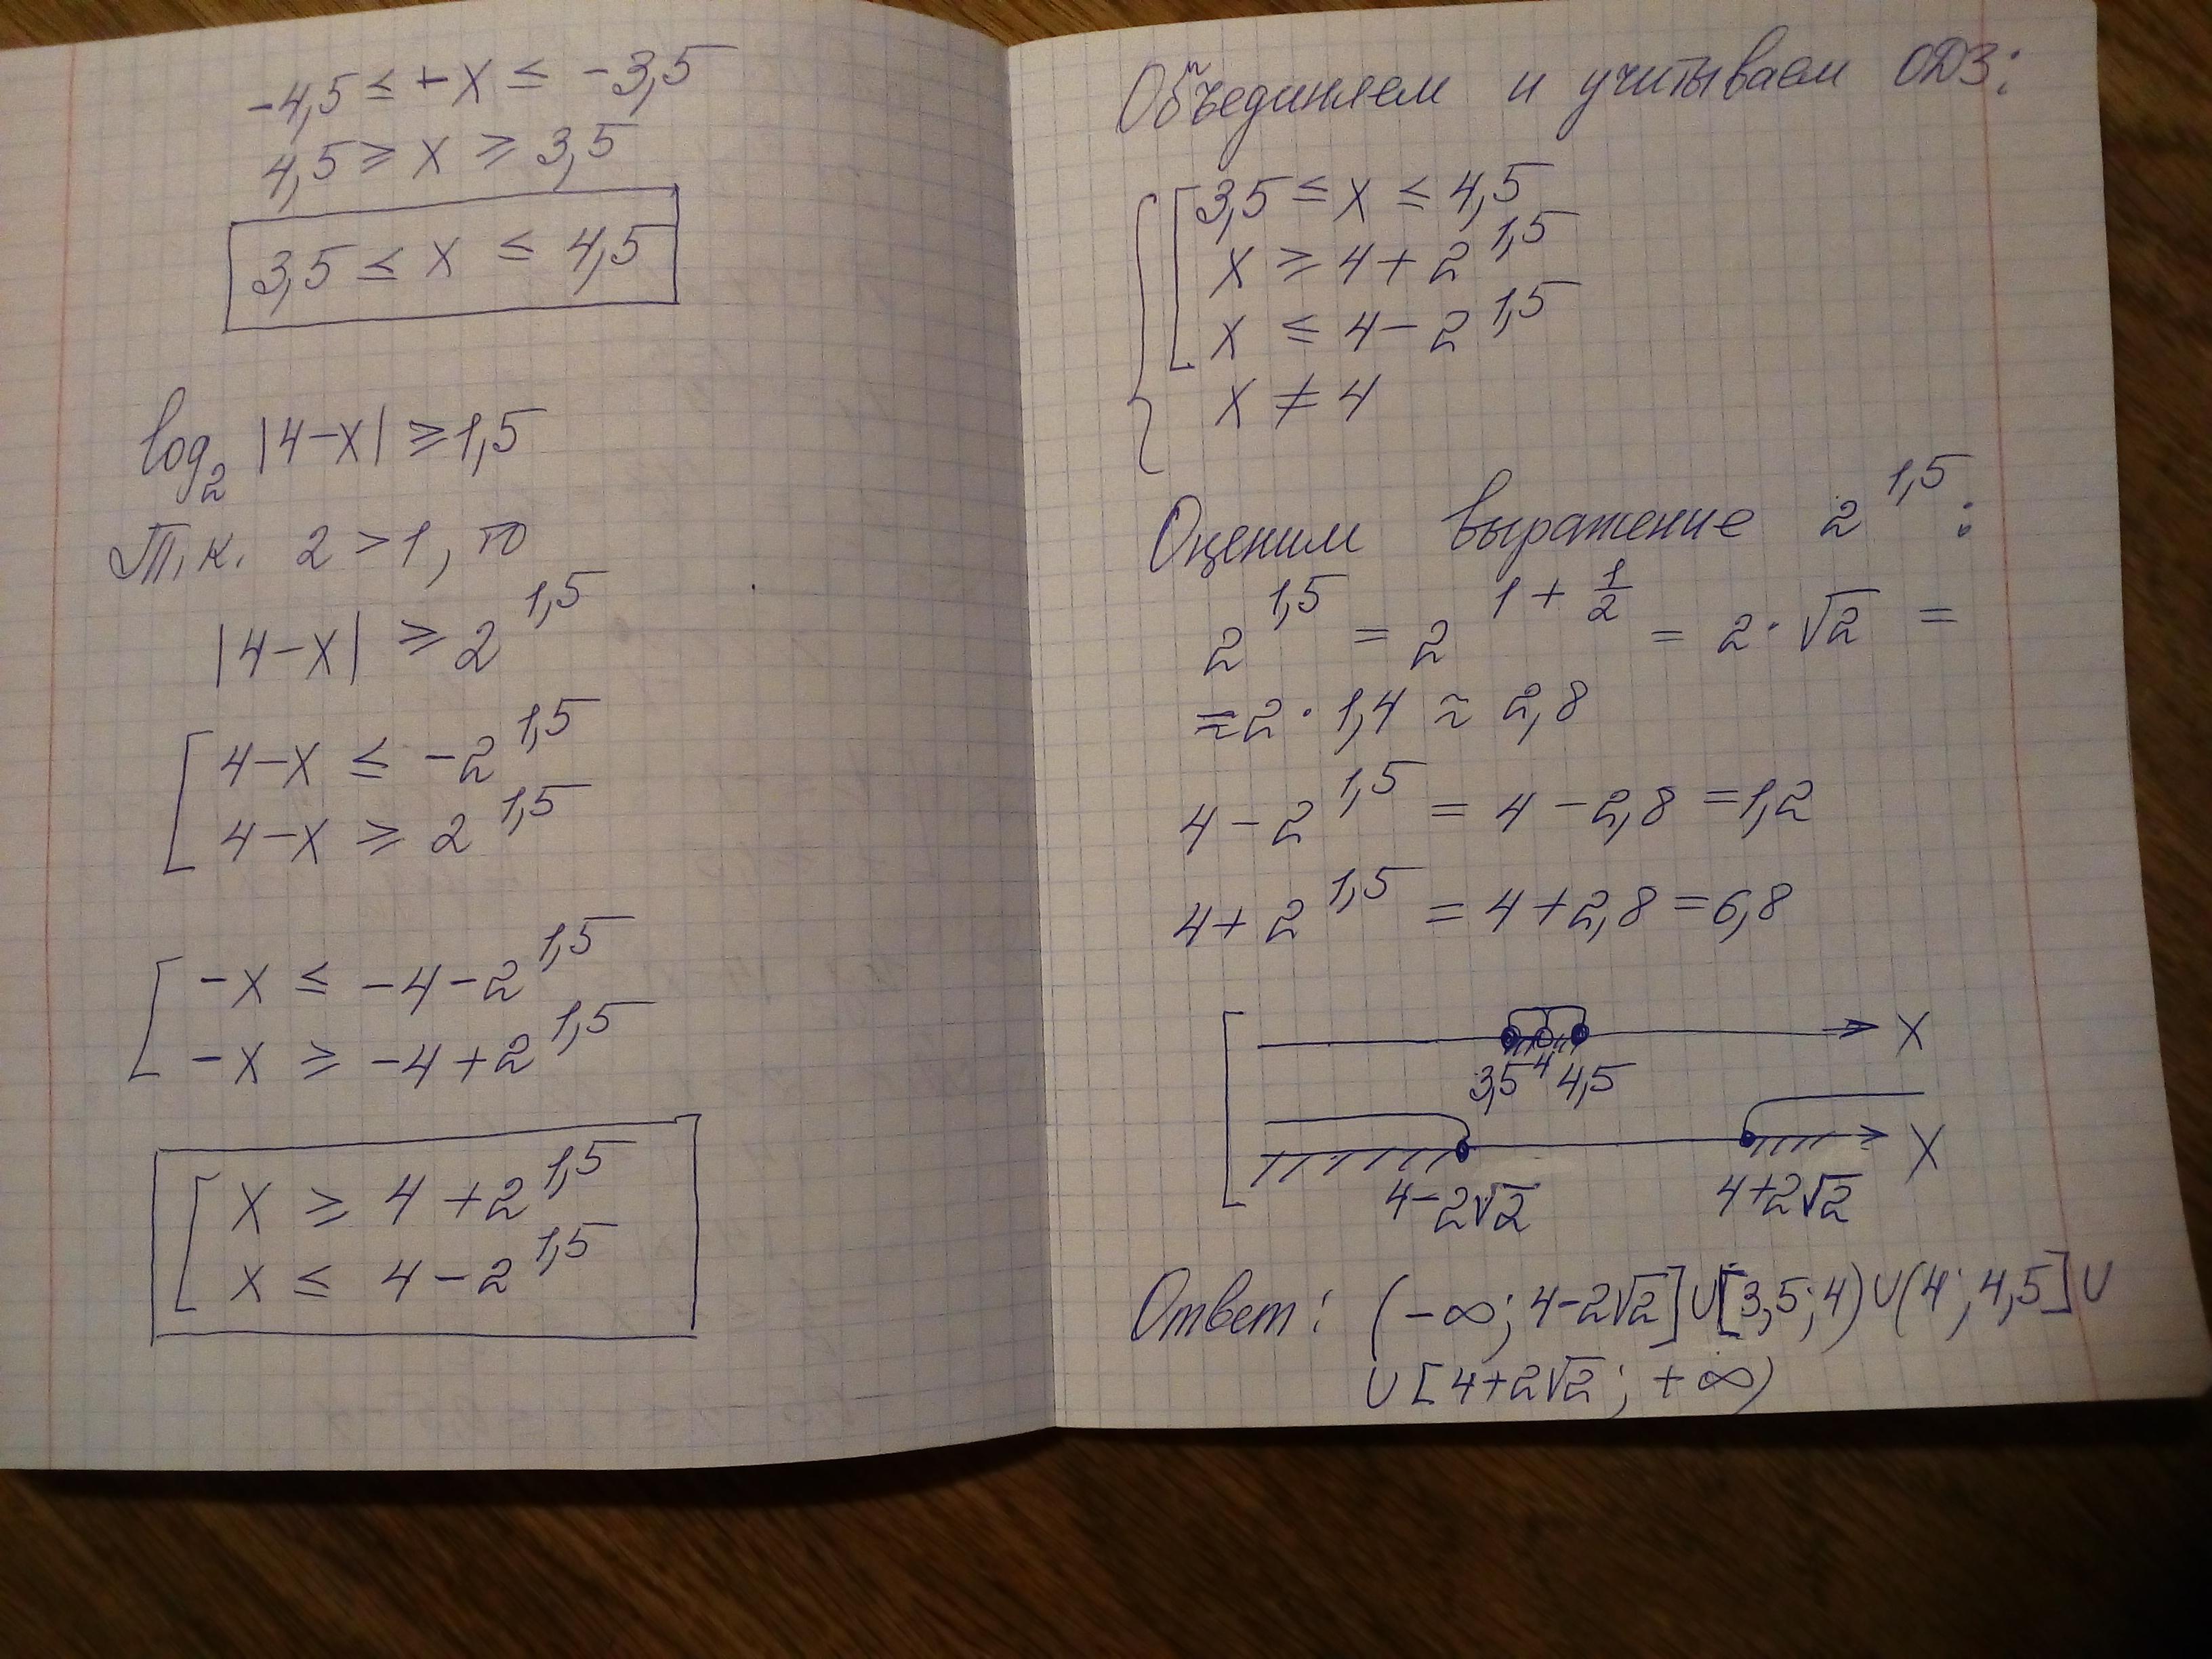 -4,5 ≤ -x ≤ -3,5
4,5 ≥ x ≥ 3,5
3,5 ≤ x ≤ 4,5
log₂ |4-x| ≥ 1,5
Т.к. 2 > 1, то
|4-x| ≥ 2^1,5
[ 4-x ≤ -2^1,5
4-x ≥ 2^1,5
[ -x ≤ -4-2^1,5
-x ≥ -4+2^1,5
[ x ≥ 4+2^1,5
x ≤ 4-2^1,5
Объединяем и учитываем ОДЗ:
{ [ 3,5 ≤ x ≤ 4,5
x ≥ 4+2^1,5
x ≤ 4-2^1,5
x ≠ 4
Оценим выражение 2^1,5:
2^1,5 = 2^(1+1/2) = 2·√2 =
≈ 2·1,4 ≈ 2,8
4-2^1,5 = 4-2,8 = 1,2
4+2^1,5 = 4+2,8 = 6,8
x
3,5 4 4,5
x
4-2√2 4+2√2
Ответ: (-∞; 4-2√2] ∪ [3,5; 4) ∪ (4; 4,5] ∪
∪ [4+2√2; +∞)